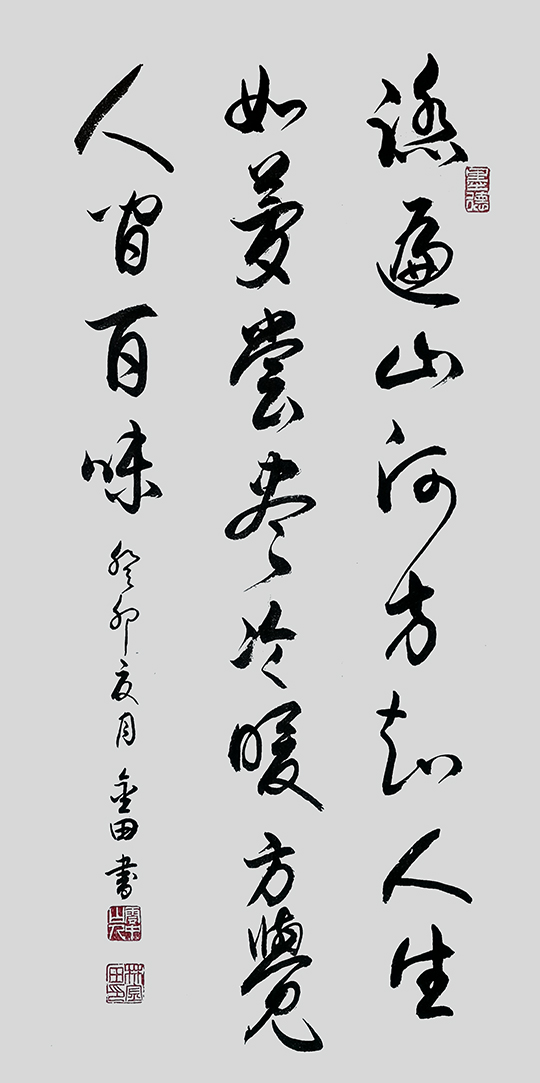 踏遍山河方知人生
如夢尝尽冷暖方覺
人間百味
癸卯夏月 金田書
墨德